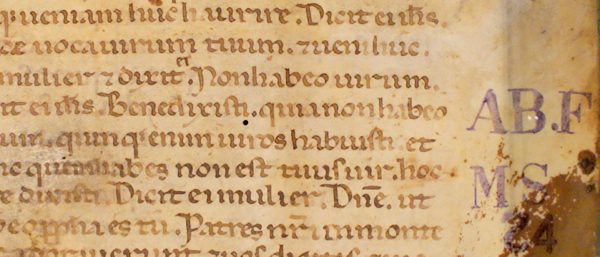 queniam huc haurire. Dicit ei ihs.
uoca uirum tuum. & ueni huc.
mulier & dixit. Non habeo uirum.
it ei ihs. Bene dixisti. quia non habeo
quinq; enim uiros habuisti. et
nc quem habes non est tuus uir. hoc
dixisti. Dicit ei mulier. Dne. ut
es tu. Patres nri in monte
AB.F
MS
24